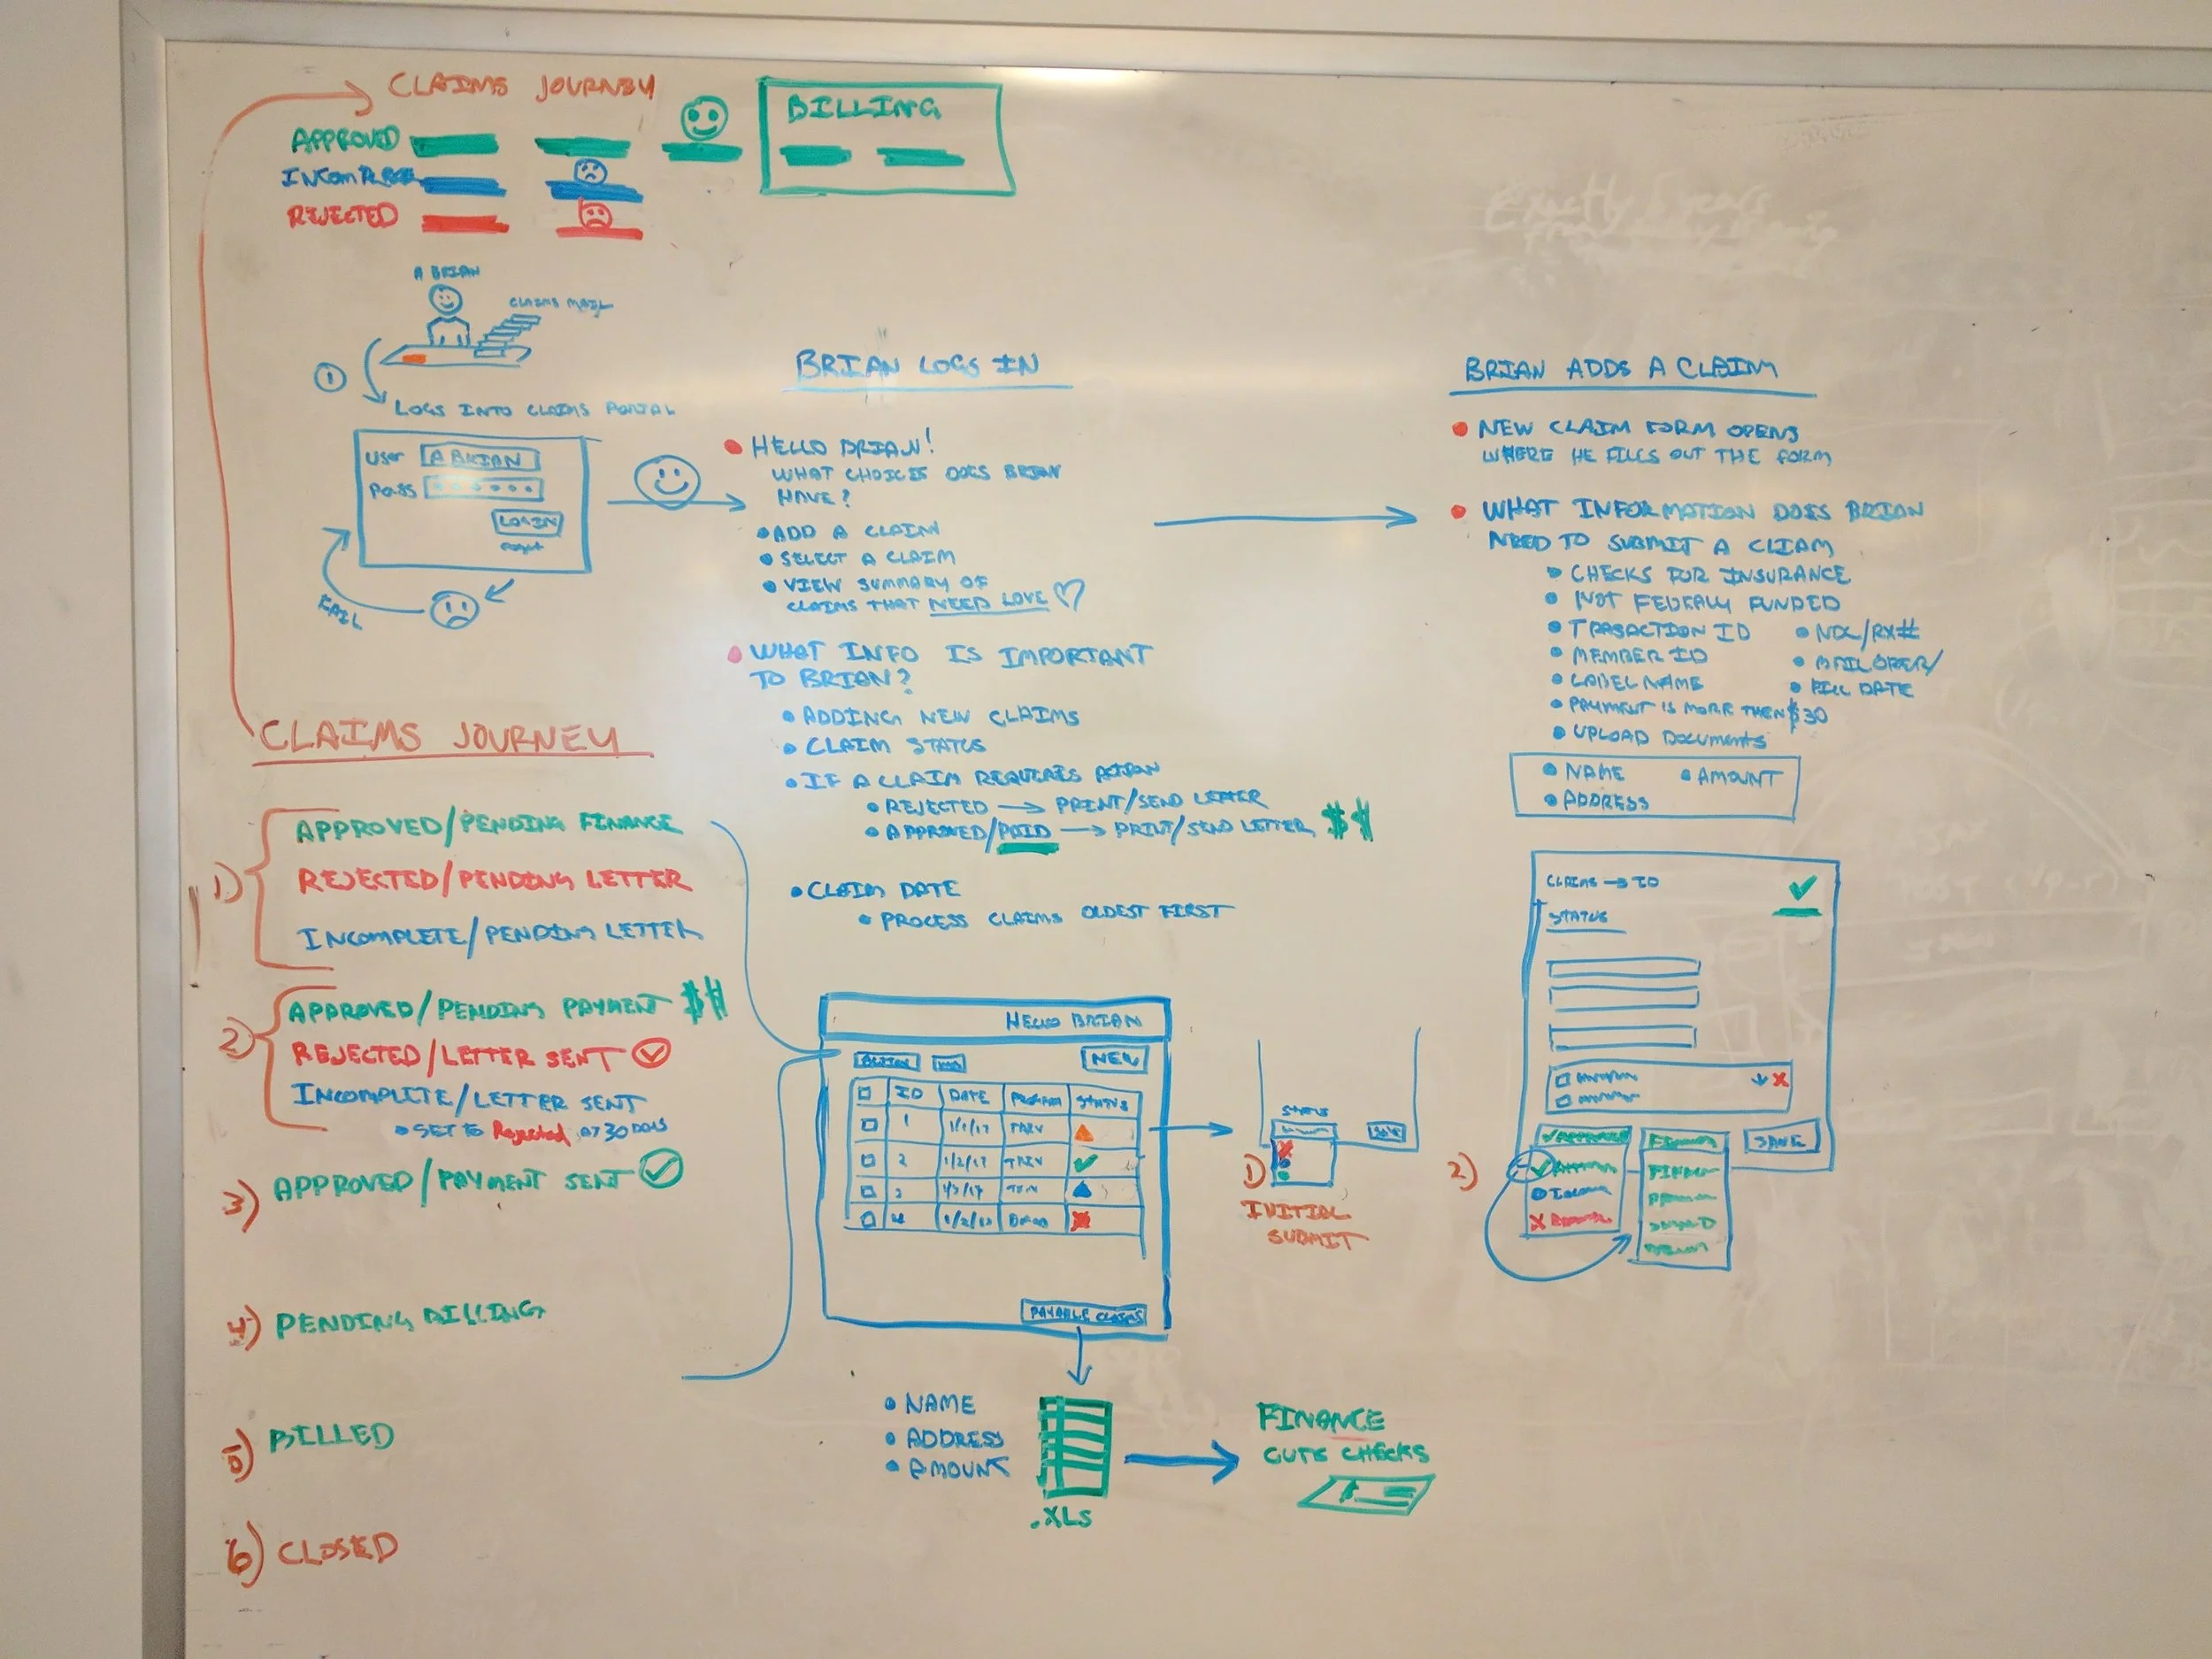 CLAIMS JOURNEY
APPROVED
REJECTED
BILLING
A BRIAN
CLAIMS MAIL
1
LOGS INTO CLAIMS PORTAL
USER A BRIAN
PASS
LOGIN
FAIL
CLAIMS JOURNEY
1) APPROVED/PENDING FINANCE
REJECTED/PENDING LETTER
INCOMPLETE/PENDING LETTER
2) APPROVED/PENDING PAYMENT $$
REJECTED/LETTER SENT
INCOMPLETE/LETTER SENT
SET TO Rejected AT 30 DAYS
3) APPROVED/PAYMENT SENT
4) PENDING BILLING
5) BILLED
6) CLOSED
BRIAN LOGS IN
HELLO BRIAN!
WHAT CHOICES DOES BRIAN
HAVE?
ADD A CLAIM
SELECT A CLAIM
VIEW SUMMARY OF
CLAIMS THAT NEED LOVE
WHAT INFO IS IMPORTANT
TO BRIAN?
ADDING NEW CLAIMS
CLAIM STATUS
IF A CLAIM REQUIRES ACTION
REJECTED → PRINT/SEND LETTER
APPROVED/PAID → PRINT/SEND LETTER $$
CLAIM DATE
PROCESS CLAIMS OLDEST FIRST
HELLO BRIAN
NEW
ID DATE PROGRAM STATUS
1 1/1/17
2 1/2/17
3 1/3/17
4
PAYABLE CLAIMS
NAME
ADDRESS
AMOUNT
.XLS
FINANCE
CUTS CHECKS
STATUS
SAVE
1) INITIAL
SUBMIT
BRIAN ADDS A CLAIM
NEW CLAIM FORM OPENS
WHERE HE FILLS OUT THE FORM
WHAT INFORMATION DOES BRIAN
NEED TO SUBMIT A CLIAM
CHECKS FOR INSURANCE
NOT FEDERALLY FUNDED
TRASACTION ID
MEMBER ID
LABEL NAME
PAYMENT IS MORE THEN $30
UPLOAD DOCUMENTS
NDC/RX#
FILL DATE
NAME
ADDRESS
AMOUNT
CLAIMS → ID
STATUS
SAVE
2)